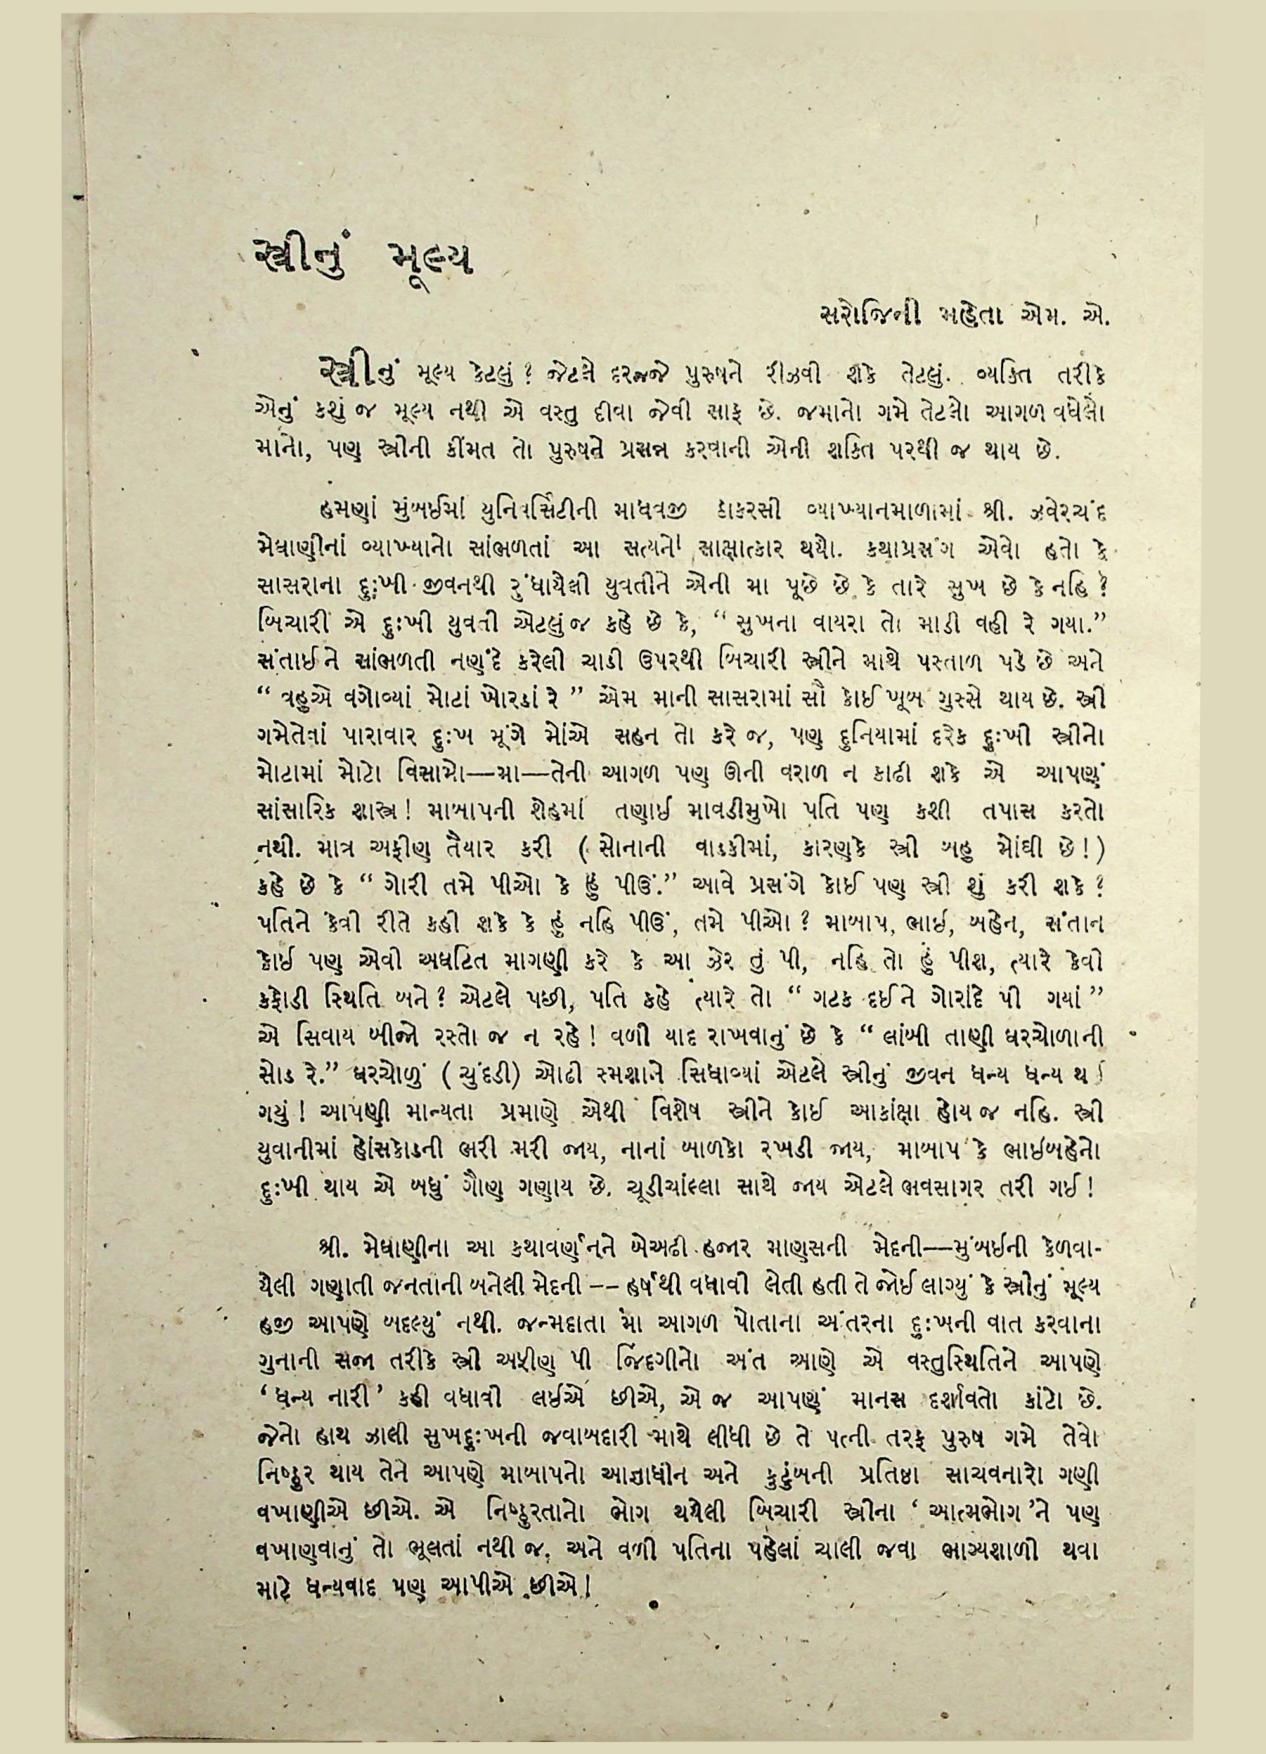 સ્ત્રીનું મૂલ્ય
સરોજિની મહેતા એમ. એ.
સ્ત્રીનું મૂલ્ય કેટલું? જેટલે દરજ્જે પુરુષને રીઝવી શકે તેટલું. વ્યક્તિ તરીકે
એનું કશું જ મૂલ્ય નથી એ વસ્તુ દીવા જેવી સાફ છે. જમાનો ગમે તેટલો આગળ વધેલો
માનો, પણ સ્ત્રીની કીંમત તો પુરુષને પ્રસન્ન કરવાની એની શક્તિ પરથી જ થાય છે.
હમણાં મુંબઈમાં યુનિવર્સિટીની માધવજી ઠાકરસી વ્યાખ્યાનમાળામાં શ્રી. ઝવેરચંદ
મેઘાણીનાં વ્યાખ્યાનો સાંભળતાં આ સત્યનો સાક્ષાત્કાર થયો. કથાપ્રસંગ એવો હતો કે
સાસરાના દુઃખી જીવનથી રુંધાયેલી યુવતીને એની મા પૂછે છે કે તારે સુખ છે કે નહિ?
બિચારી એ દુઃખી યુવતી એટલું જ કહે છે કે, “ સુખના વાયરા તો માડી વહી રે ગયા.”
સંતાઈને સાંભળતી નણંદે કરેલી ચાડી ઉપરથી બિચારી સ્ત્રીને માથે પસ્તાળ પડે છે અને
“ વહુએ વગોવ્યાં મોટાં ખોરડાં રે ” એમ માની સાસરામાં સૌ કોઈ ખૂબ ગુસ્સે થાય છે. સ્ત્રી
ગમેતેવાં પારાવાર દુઃખ મૂંગે મોંએ સહન તો કરે જ, પણ દુનિયામાં દરેક દુઃખી સ્ત્રીનો
મોટામાં મોટો વિસામો—મા—તેની આગળ પણ ઊની વરાળ ન કાઢી શકે એ આપણું
સાંસારિક શાસ્ત્ર! માબાપની શેહમાં તણાઈ માવડીમુખો પતિ પણ કશી તપાસ કરતો
નથી. માત્ર અફીણ તૈયાર કરી ( સોનાની વાડકીમાં, કારણકે સ્ત્રી બહુ મોંઘી છે!)
કહે છે કે “ ગોરી તમે પીઓ કે હું પીઉં.” આવે પ્રસંગે કોઈ પણ સ્ત્રી શું કરી શકે?
પતિને કેવી રીતે કહી શકે કે હું નહિ પીઉં, તમે પીઓ? માબાપ, ભાઈ, બહેન, સંતાન
કોઈ પણ એવી અઘટિત માગણી કરે કે આ ઝેર તું પી, નહિ તો હું પીશ, ત્યારે કેવી
કફોડી સ્થિતિ બને? એટલે પછી, પતિ કહે ત્યારે તો “ ગટક દઈને ગોરાંદે પી ગયાં ”
એ સિવાય બીજો રસ્તો જ ન રહે! વળી યાદ રાખવાનું છે કે “ લાંબી તાણી ઘરચોળાની
સોડ રે.” ઘરચોળું ( ચુંદડી) ઓઢી સ્મશાને સિધાવ્યાં એટલે સ્ત્રીનું જીવન ધન્ય ધન્ય થઈ
ગયું! આપણી માન્યતા પ્રમાણે એથી વિશેષ સ્ત્રીને કોઈ આકાંક્ષા હોય જ નહિ. સ્ત્રી
યુવાનીમાં હોંસકોડની ભરી મરી જાય, નાનાં બાળકો રખડી જાય, માબાપ કે ભાઈબહેનો
દુઃખી થાય એ બધું ગૌણ ગણાય છે. ચૂડીચાંલ્લા સાથે જાય એટલે ભવસાગર તરી ગઈ!
શ્રી. મેઘાણીના આ કથાવર્ણનને બેઅઢી હજાર માણસની મેદની—મુંબઈની કેળવા-
યેલી ગણાતી જનતાની બનેલી મેદની -- હર્ષથી વધાવી લેતી હતી તે જોઈ લાગ્યું કે સ્ત્રીનું મૂલ્ય
હજી આપણે બદલ્યું નથી. જન્મદાતા મા આગળ પોતાના અંતરના દુઃખની વાત કરવાના
ગુનાની સજા તરીકે સ્ત્રી અફીણ પી જિંદગીનો અંત આણે એ વસ્તુસ્થિતિને આપણે
‘ ધન્ય નારી ’ કહી વધાવી લઈએ છીએ, એ જ આપણું માનસ દર્શાવતો કાંટો છે.
જેનો હાથ ઝાલી સુખદુઃખની જવાબદારી માથે લીધી છે તે પત્ની તરફ પુરુષ ગમે તેવો
નિષ્ઠુર થાય તેને આપણે માબાપનો આજ્ઞાધીન અને કુટુંબની પ્રતિષ્ઠા સાચવનારો ગણી
વખાણીએ છીએ. એ નિષ્ઠુરતાનો ભોગ થયેલી બિચારી સ્ત્રીના ‘ આત્મભોગ ’ને પણ
વખાણવાનું તો ભૂલતાં નથી જ, અને વળી પતિના પહેલાં ચાલી જવા ભાગ્યશાળી થવા
માટે ધન્યવાદ પણ આપીએ છીએ!